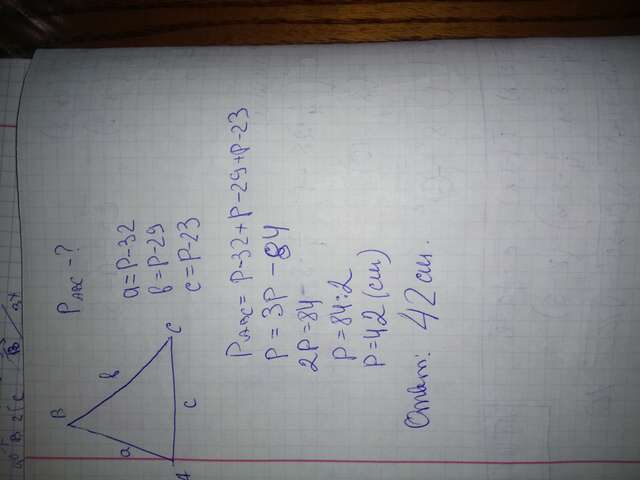 A
a
B
c
в
C
P ABC - ?
a = P - 32
в = P - 29
c = P - 23
P ABC = P - 32 + P - 29 + P - 23
P = 3P - 84
2P = 84
P = 84 : 2
P = 42 (см)
Ответ: 42 см.